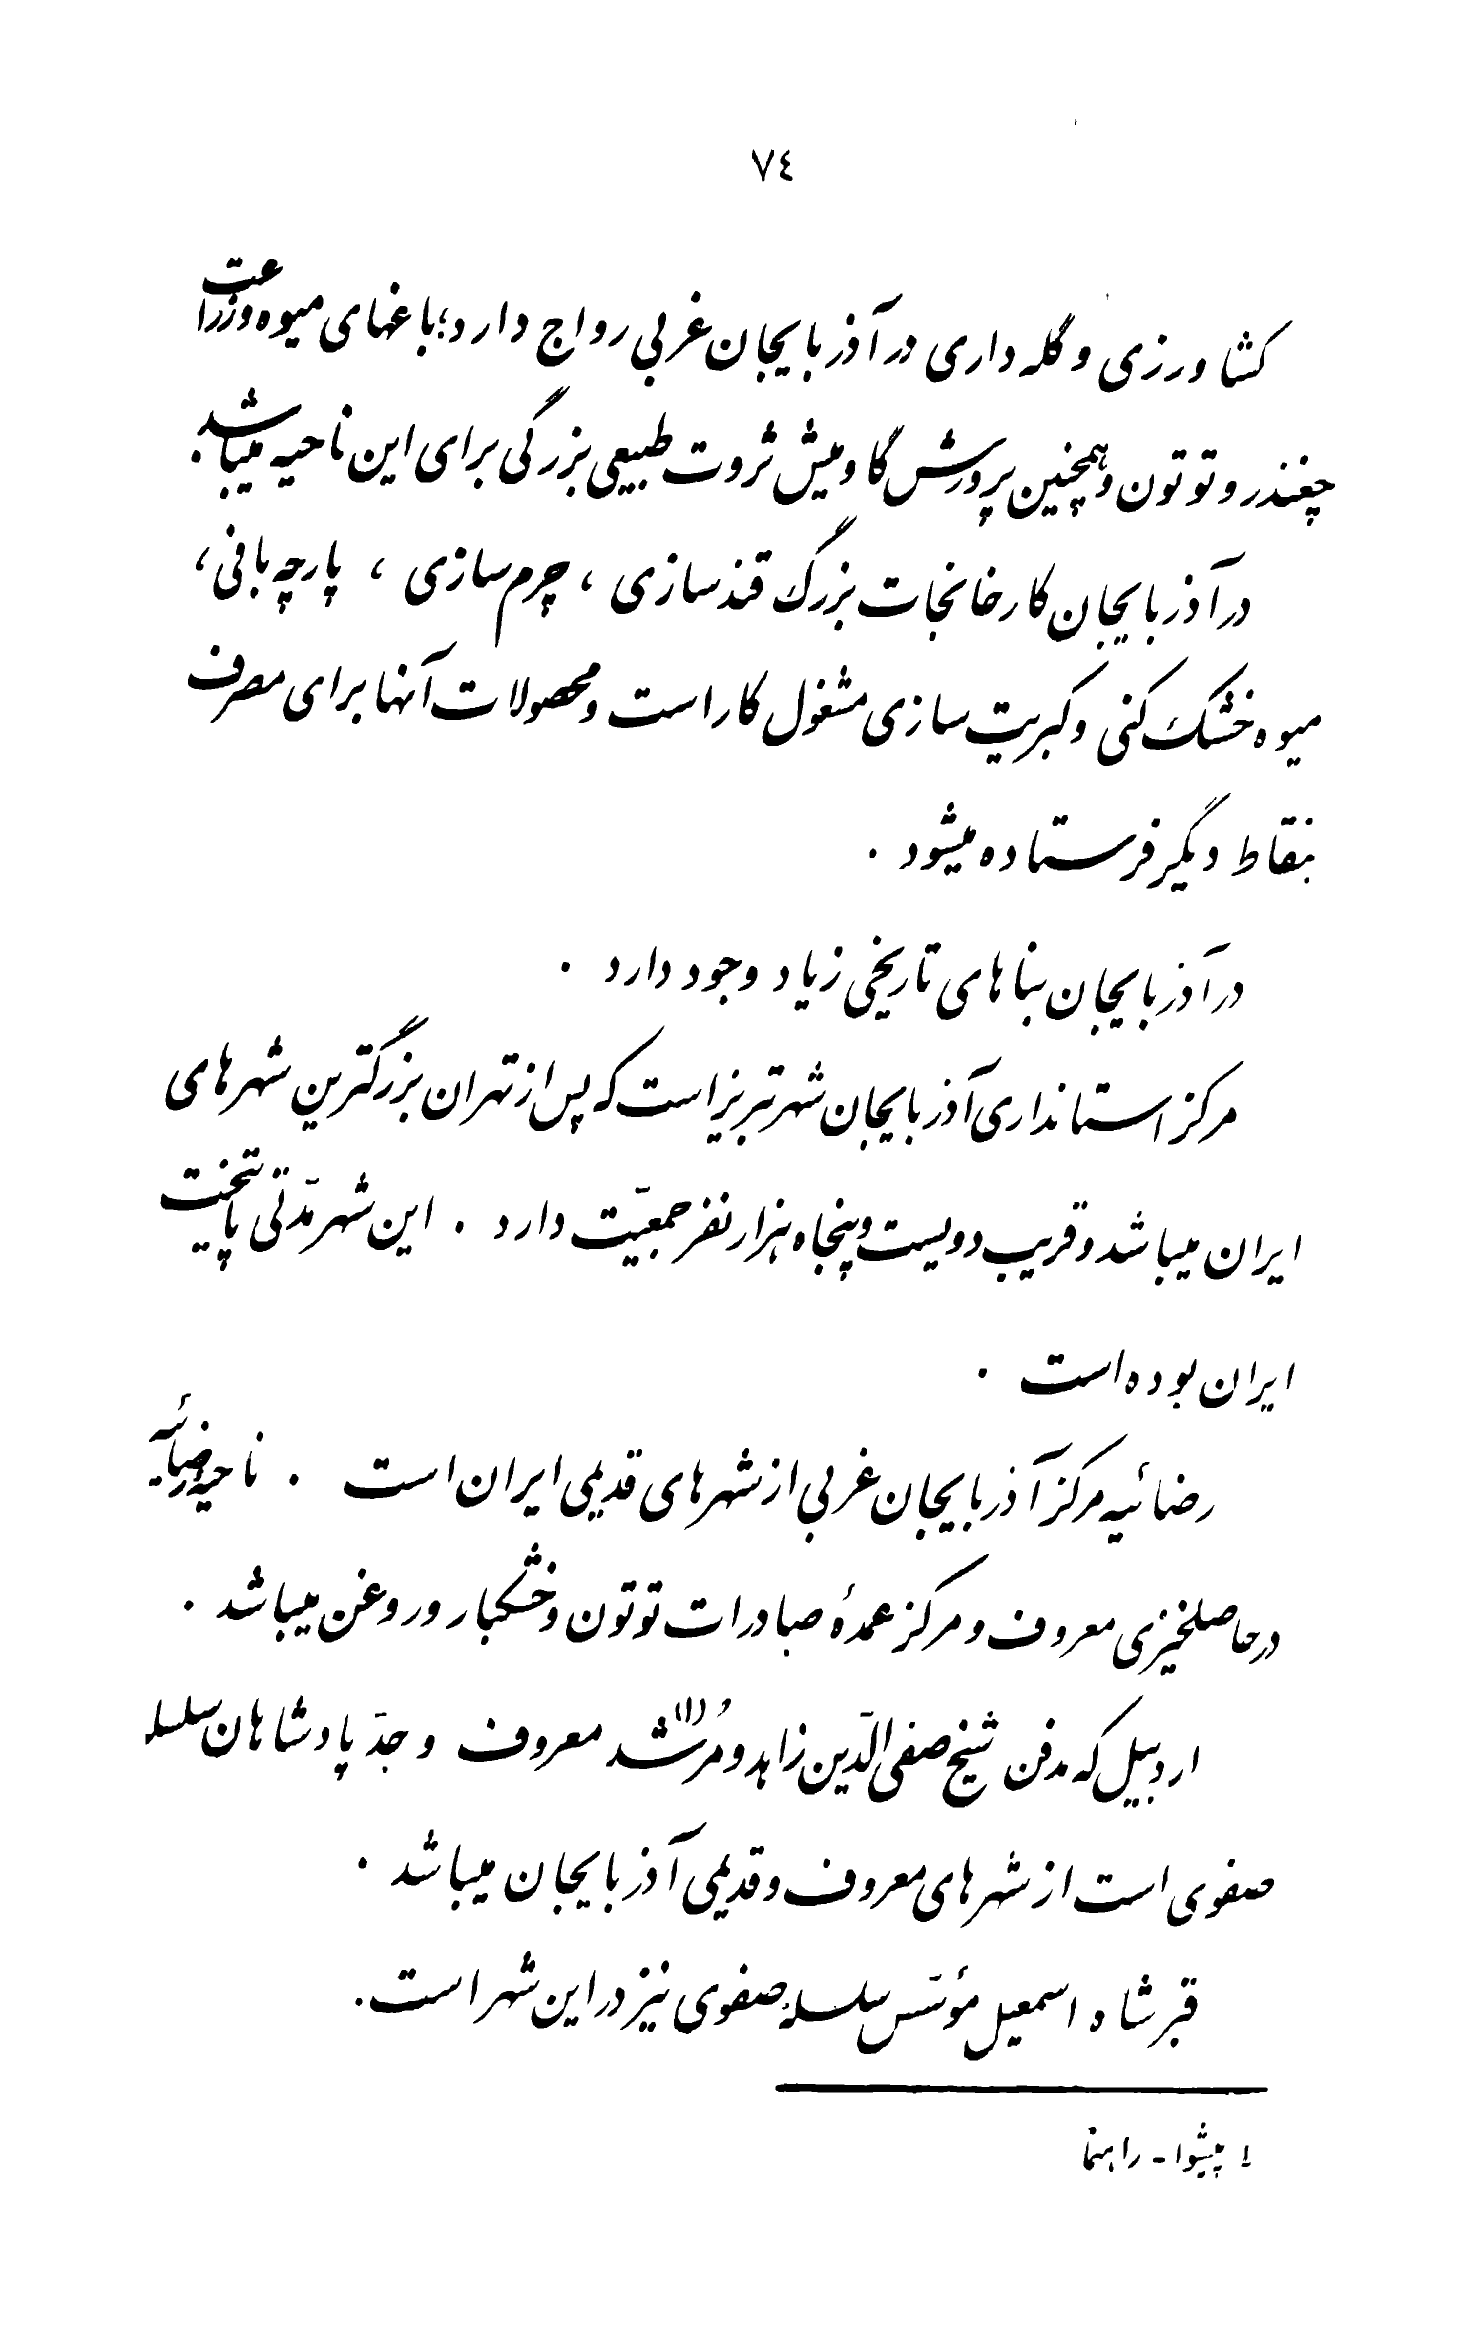 ٧٤
کشاورزی و گله داری در آذربایجان غربی رواج دارد؛ باغهای میوه و زراعت
چغندر و توتون و همچنین پرورش گاومیش ثروت طبیعی بزرگی برای این ناحیه میباشد.
در آذربایجان کارخانجات بزرگ قندسازی ، چرم سازی ، پارچه بافی ،
میوه خشک کنی و کبریت سازی مشغول کار است و محصولات آنها برای مصرف
بنقاط دیگر فرستاده میشود .
در آذربایجان بناهای تاریخی زیاد وجود دارد .
مرکز استانداری آذربایجان شهر تبریز است که پس از تهران بزرگترین شهرهای
ایران میباشد و قریب دویست و پنجاه هزار نفر جمعیّت دارد . این شهر مدّتی پایتخت
ایران بوده است .
رضائیه مرکز آذربایجان غربی از شهرهای قدیمی ایران است . ناحیهٔ رضائیه
در حاصلخیزی معروف و مرکز عمدهٔ صادرات توتون و خشکبار و روغن میباشد .
اردبیل که مدفن شیخ صفی الدّین زاهد و مُرشد (۱) معروف و جدّ پادشاهان سلسله
صفوی است از شهرهای معروف و قدیمی آذربایجان میباشد .
قبر شاه اسمعیل مؤسّس سلسلهٔ صفوی نیز در این شهر است .
۱ پیشوا - راهنما